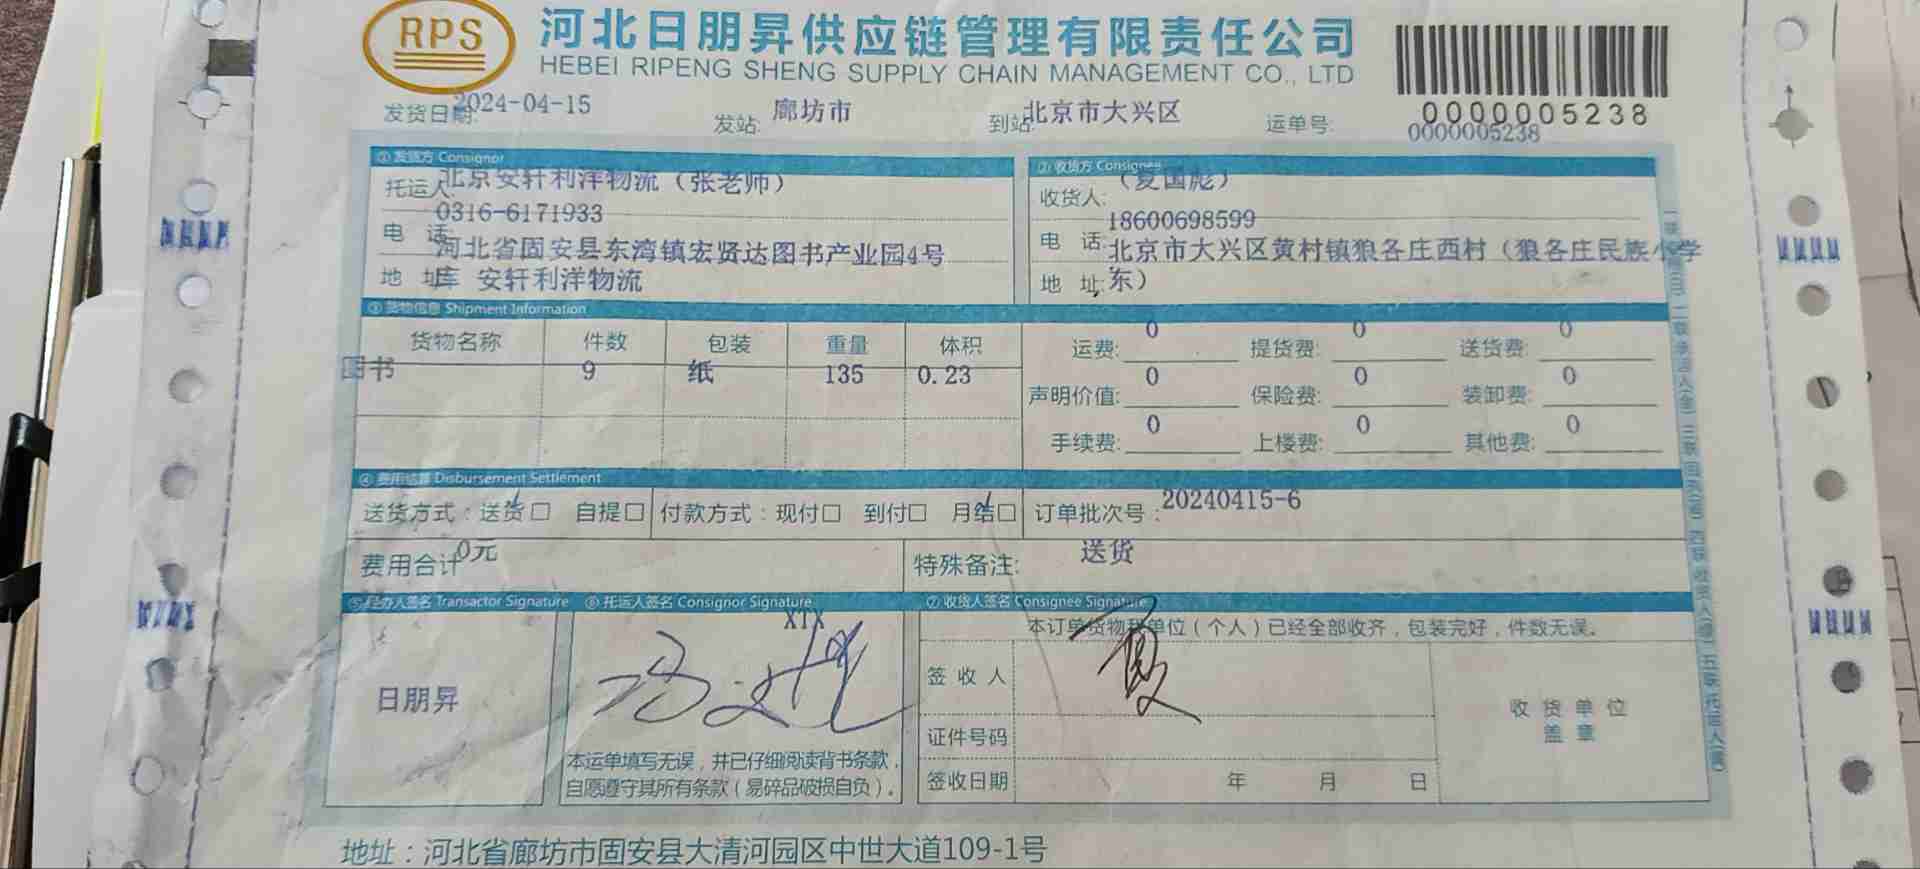 RPS
河北日朋昇供应链管理有限责任公司
HEBEI RIPENG SHENG SUPPLY CHAIN MANAGEMENT CO., LTD
发货日期: 2024-04-15 发站: 廊坊市 到站: 北京市大兴区 运单号: 0000005238
0000005238
① 发货方 Consignor
托运人 北京安轩利洋物流（张老师）
电 话 0316-6171933
地 址 河北省固安县东湾镇宏贤达图书产业园4号
库 安轩利洋物流
② 收货方 Consignee
收货人: （夏国彪）
电 话: 18600698599
地 址: 北京市大兴区黄村镇狼各庄西村（狼各庄民族小学
东）
③ 货物信息 Shipment Information
货物名称 件数 包装 重量 体积
图书 9 纸 135 0.23
运费: 0 提货费: 0 送货费: 0
声明价值: 0 保险费: 0 装卸费: 0
手续费: 0 上楼费: 0 其他费: 0
④ 费用结算 Disbursement Settlement
送货方式：送货□ 自提□ 付款方式：现付□ 到付□ 月结□ 订单批次号：20240415-6
费用合计 0元 特殊备注: 送货
⑤ 经办人签名 Transactor Signature ⑥ 托运人签名 Consignor Signature ⑦ 收货人签名 Consignee Signature
日朋昇
XTX
本运单填写无误，并已仔细阅读背书条款，
自愿遵守其所有条款（易碎品破损自负）。
本订单货物我单位（个人）已经全部收齐，包装完好，件数无误。
签 收 人 夏
证件号码
签收日期 年 月 日
收 货 单 位
盖 章
地址：河北省廊坊市固安县大清河园区中世大道109-1号